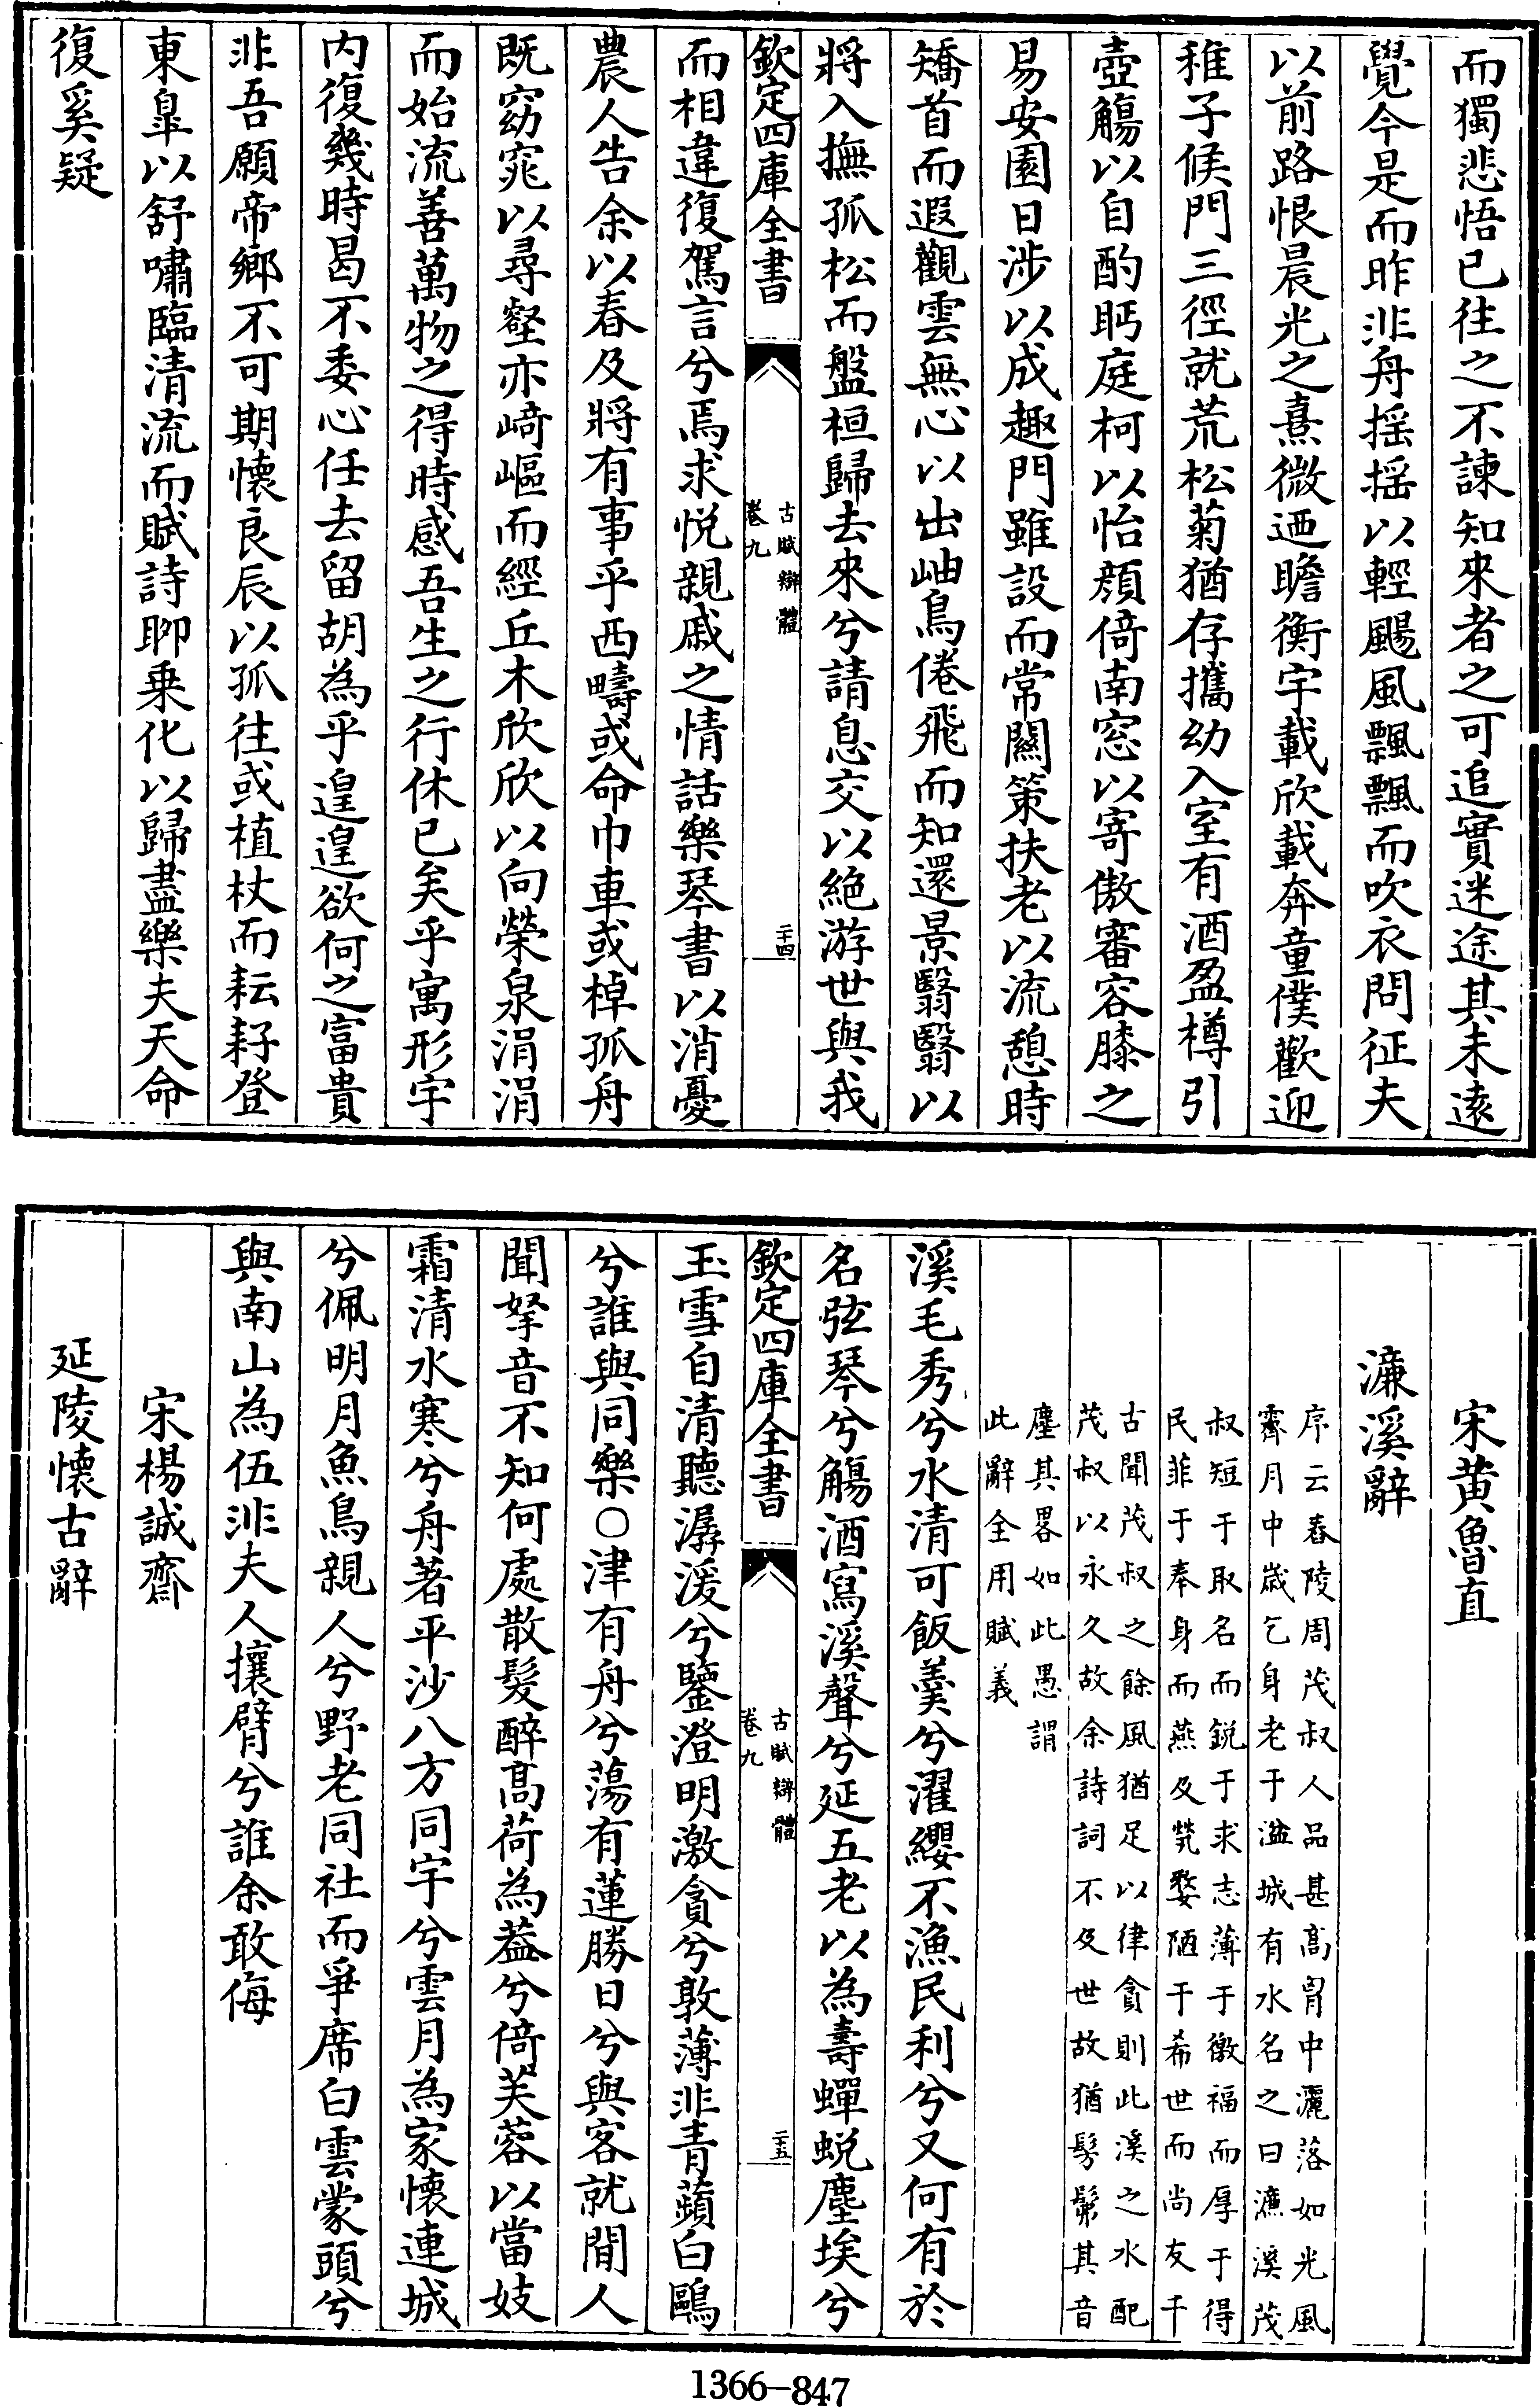 而獨悲悟已往之不諫知來者之可追實迷途其未遠
覺今是而昨非舟揺揺以輕颺風飄飄而吹衣問征夫
以前路恨晨光之熹微迺瞻衡宇載欣載奔童僕歡迎
稚子候門三徑就荒松菊猶存攜幼入室有酒盈樽引
壺觴以自酌眄庭柯以怡顔倚南窓以寄傲審容膝之
易安園日涉以成趣門雖設而常關策扶老以流憩時
矯首而遐觀雲無心以出岫鳥倦飛而知還景翳翳以
將入撫孤松而盤桓歸去來兮請息交以絶游世與我
欽定四庫全書
古賦辯體
卷九
二十四
而相違復駕言兮焉求悦親戚之情話樂琴書以消憂
農人告余以春及將有事乎西疇或命巾車或棹孤舟
既窈窕以尋壑亦﨑嶇而經丘木欣欣以向榮泉涓涓
而始流善萬物之得時感吾生之行休已矣乎寓形宇
内復幾時曷不委心任去留胡為乎遑遑欲何之富貴
非吾願帝鄉不可期懐良辰以孤往或植杖而耘耔登
東臯以舒嘯臨清流而賦詩聊乗化以歸盡樂夫天命
復奚疑
宋黄魯直
濂溪辭
序云舂陵周茂叔人品甚髙胷中灑落如光風
霽月中歳乞身老于湓城有水名之曰濂溪茂
叔短于取名而鋭于求志薄于徼福而厚于得
民菲于奉身而燕及煢嫠陋于希世而尚友千
古聞茂叔之餘風猶足以律貪則此溪之水配
茂叔以永久故余詩詞不及世故猶髣髴其音
塵其畧如此愚謂
此辭全用賦義
溪毛秀兮水清可飯羮兮濯纓不漁民利兮又何有於
名弦琴兮觴酒寫溪聲兮延五老以為壽蟬蜕塵埃兮
欽定四庫全書
古賦辯體
卷九
二十五
玉雪自清聽潺湲兮鑒澄明激貪兮敦薄非青蘋白鷗
兮誰與同樂○津有舟兮蕩有蓮勝日兮與客就閒人
聞拏音不知何處散髮醉髙荷為葢兮倚芙蓉以當妓
霜清水寒兮舟著平沙八方同宇兮雲月為家懐連城
兮佩明月魚鳥親人兮野老同社而爭席白雲蒙頭兮
與南山為伍非夫人攘臂兮誰余敢侮
宋楊誠齋
延陵懐古辭
1366—847